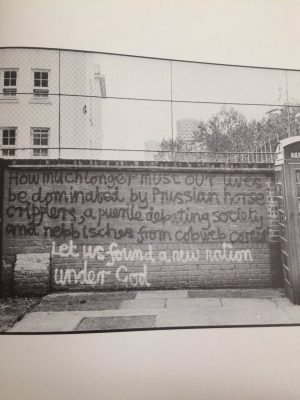 How much longer must our lives
be dominated by Prussian horse
cripplers, a puerile debating society
and nebbisches from cobweb corner
Let us found a new nation
under God